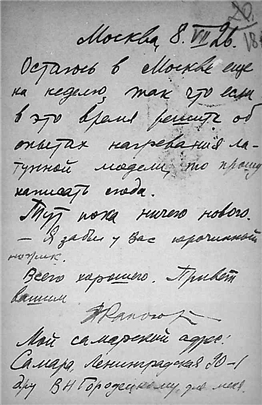 20.
18
Москва, 8. VII 26.
Остаюсь в Москве еще
на неделю, так что если
в это время решите об
опытах нагревания ла-
тунной модели то прошу
написать сюда.
Тут пока ничего нового.
— Я забыл у Вас перочинный
ножик.
Всего хорошего. Привет
вашим
Мой самарский адрес:
Самара, Ленинградская 30-1
дру В Н Городецкому, для меня.